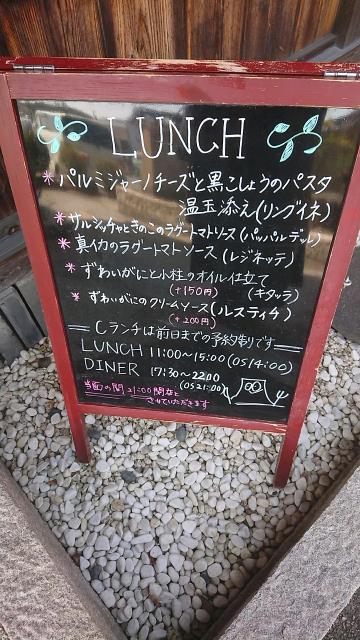 LUNCH
* パルミジャーノチーズと黒こしょうのパスタ
温玉添え(リングイネ)
* サルシッチャときのこのラグートマトソース(パッパルデッレ)
* 真イカのラグートマトソース(レジネッテ)
* ずわいがにと小柱のオイル仕立て
(+150円) (キタッラ)
* ずわいがにのクリームソース(ルスティチ)
(+200円)
=Cランチは前日までの予約制です=
LUNCH 11:00~15:00(OS14:00)
DINER 17:30~22:00
(OS21:00)
当面の間 21:00閉店と
させていただきます